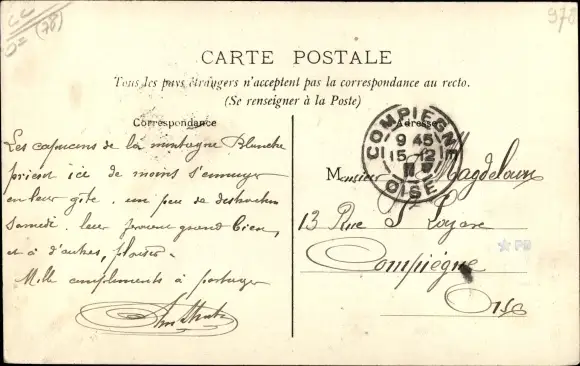 CC
(78)
978
CARTE POSTALE
Tous les pays étrangers n'acceptent pas la correspondance au recto.
(Se renseigner à la Poste)
Correspondance
Adresse
Les capucins de la montagne Blanche
prient ici de moins s'ennuyer
en leur gîte. un peu de
Samedi. leur ferait grand bien,
et à d'autres, plaisir.
Mille compliments à partager
COMPIEGNE
9 45
15 12
OISE
Monsieur Magdelain
13 Rue St Lazare
Compiègne
Oise
PH